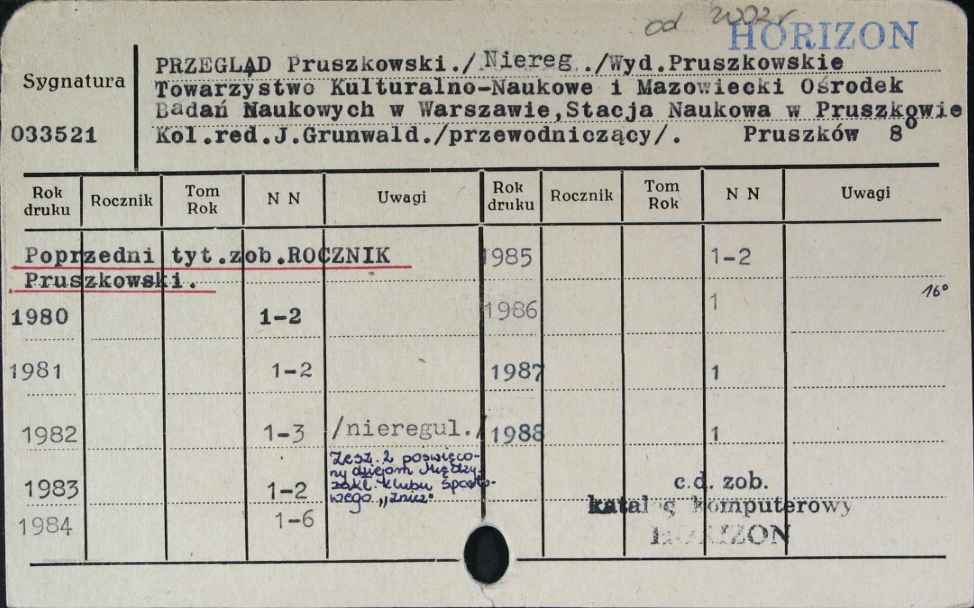 od 2002 r
HORIZON
Sygnatura
033521
PRZEGLĄD Pruszkowski./Niereg./Wyd.Pruszkowskie
Towarzystwo Kulturalno-Naukowe i Mazowiecki Ośrodek
Badań Naukowych w Warszawie,Stacja Naukowa w Pruszkowie
Kol.red.J.Grunwald./przewodniczący/. Pruszków 8°
Rok druku Rocznik Tom Rok N N Uwagi Rok druku Rocznik Tom Rok N N Uwagi
Poprzedni tyt.zob.ROCZNIK
Pruszkowski.
1980 1-2
1981 1-2
1982 1-3 /nieregul./
Zesz. 2 poświęco-
ny dziejom Między-
zakł. klubu Sporto-
wego „Znicz"
1983 1-2
1984 1-6
1985 1-2
1986 1 16°
1987 1
1988 1
c.d. zob.
katalog komputerowy
HORIZON